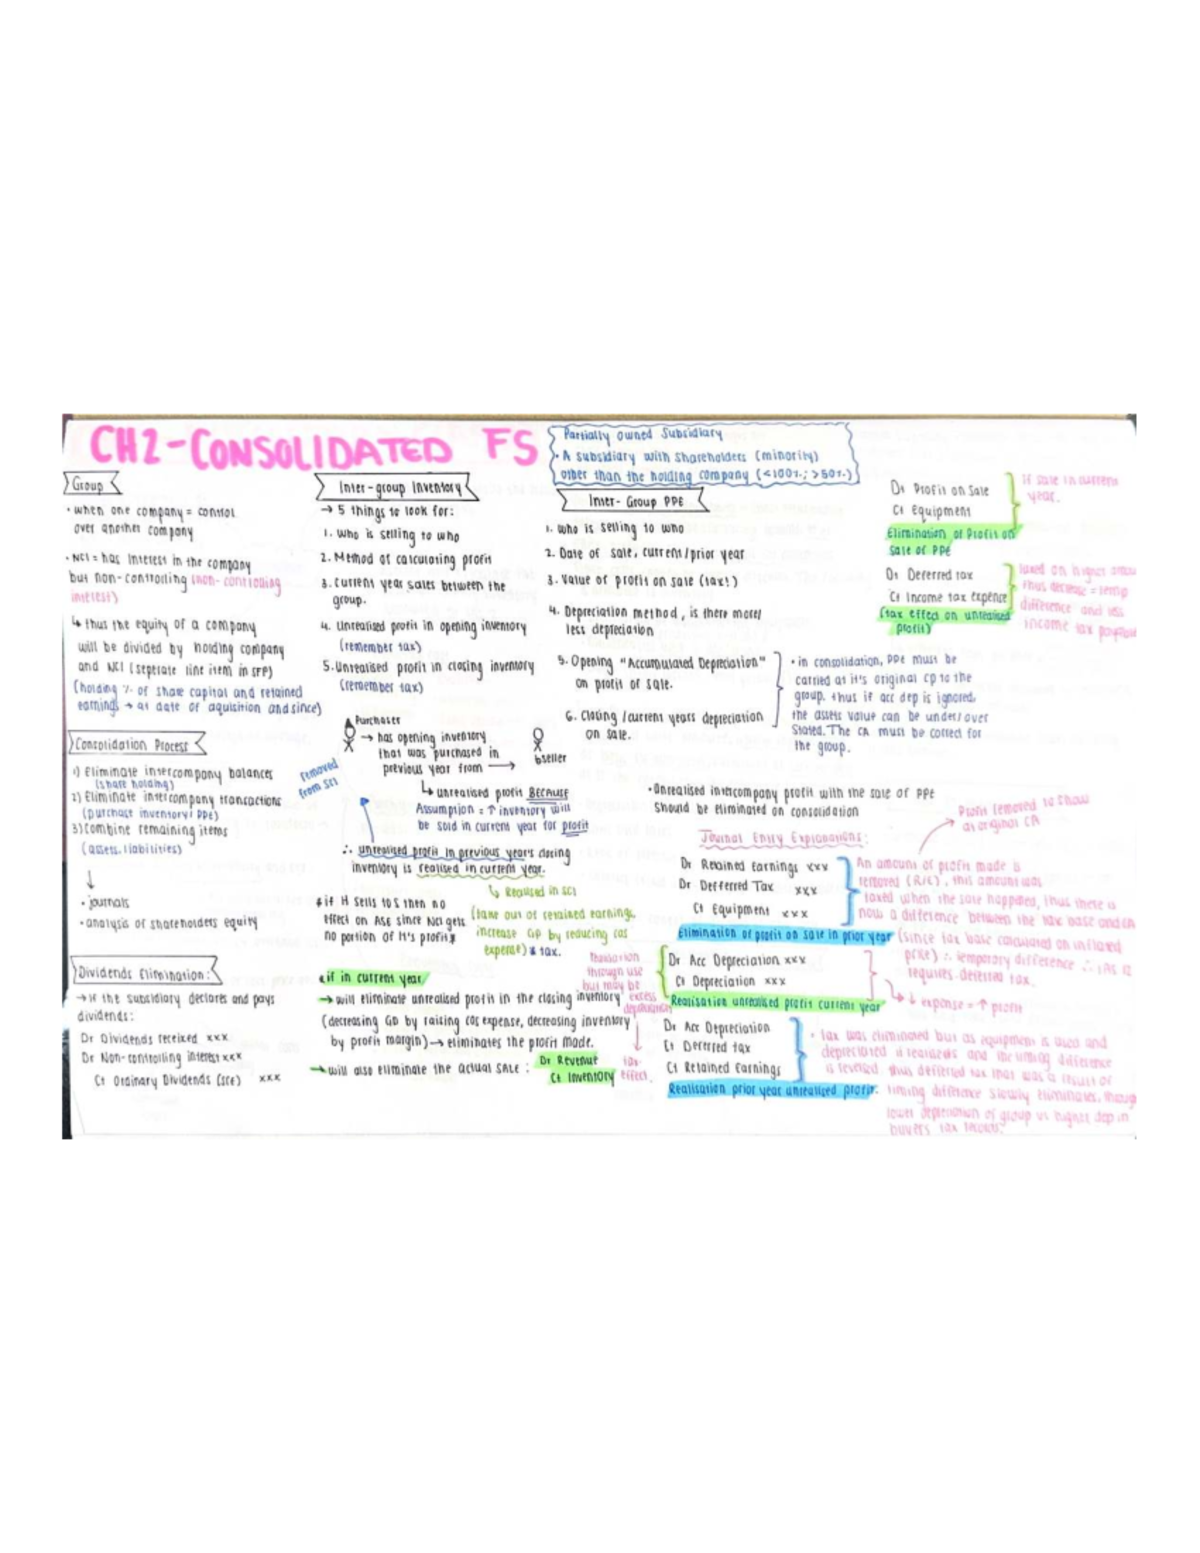 CH2-CONSOLIDATED FS
Partially Owned Subsidiary
• A subsidiary with shareholders (minority)
other than the holding company (<100%; >50%)
Group
• when one company = control
over another company
• NCI = has interest in the company
but non-controlling (non-controlling
interest)
↳ thus the equity of a company
will be divided by holding company
and NCI (seperate line item in SFP)
(holding % of share capital and retained
earnings → at date of aquisition and since)
Consolidation Process
1) Eliminate intercompany balances
(share holding)
2) Eliminate intercompany transactions
(purchase inventory; PPE)
3) combine remaining items
(assets, liabilities)
• journals
• analysis of shareholders equity
Dividends Elimination:
→ if the subsidiary declares and pays
dividends:
Dr Dividends received xxx
Dr Non-controlling interest xxx
Ct Ordinary Dividends (sce) xxx
Inter-group Inventory
→ 5 things to look for:
1. who is selling to who
2. Method of calculating profit
3. current year sales between the
group.
4. Unrealised profit in opening inventory
(remember tax)
5. Unrealised profit in closing inventory
(remember tax)
Purchaser
→ has opening inventory
that was purchased in
previous year from →
seller
removed
from SCI
↳ unrealised profit BECAUSE
Assumption = ↑ inventory will
be sold in current year for profit
∴ unrealised profit in previous year's closing
inventory is realised in current year.
↳ Realised in SCI
* if H sells to S then no
effect on ASE since NCI gets
no portion of H's profit*
(take out of retained earnings,
increase GP by reducing cos
expense) & tax.
* if in current year
→ will eliminate unrealised profit in the closing inventory
(decreasing GP by raising cos expense, decreasing inventory
by profit margin) → eliminates the profit made.
→ will also eliminate the actual SALE:
Dr Revenue
Ct Inventory
tax
effect.
Inter-Group PPE
1. who is selling to who
2. Date of sale, current/prior year
3. Value of profit on sale (tax!)
4. Depreciation method, is there more/
less depreciation
5. Opening "Accumulated Depreciation"
on profit of sale.
6. Closing/current years depreciation
on sale.
• in consolidation, PPE must be
carried at it's original cp to the
group, thus if acc dep is ignored,
the assets value can be under/over
stated. The CA must be correct for
the group.
• Unrealised intercompany profit with the sale of PPE
should be eliminated on consolidation
Journal Entry Explanations:
Dr Retained Earnings xxx
Dr Defferred Tax xxx
Ct Equipment xxx
Elimination of profit on sale in prior year
Profit removed to show
at original CA
An amount of profit made is
removed (R/E), this amount was
taxed when the sale happened, thus there is
now a difference between the tax base and CA
(since tax base calculated on inflated
price) ∴ temporary difference ∴ IAS 12
requires deferred tax.
Realisation
through use
but may be
excess
depreciation
Dr Acc Depreciation xxx
Ct Depreciation xxx
Realisation unrealised profit current year
↳ ↓ expense = ↑ profit
Dr Acc Depreciation
Ct Deferred tax
Ct Retained Earnings
Realisation prior year unrealised profit:
• tax was eliminated but as equipment is used and
depreciated it realises and the timing difference
is reversed thus deffered tax that was a result of
timing difference slowly eliminates, though
lower depreciation of group vs higher dep in
buyers tax records.
Dr Profit on Sale
Ct Equipment
Elimination of Profit on
sale of PPE
if sale in current
year.
Dr Deferred tax
Ct Income tax expence
(tax effect on unrealised
profit)
taxed on higher
thus decrease = temp
difference and less
income tax